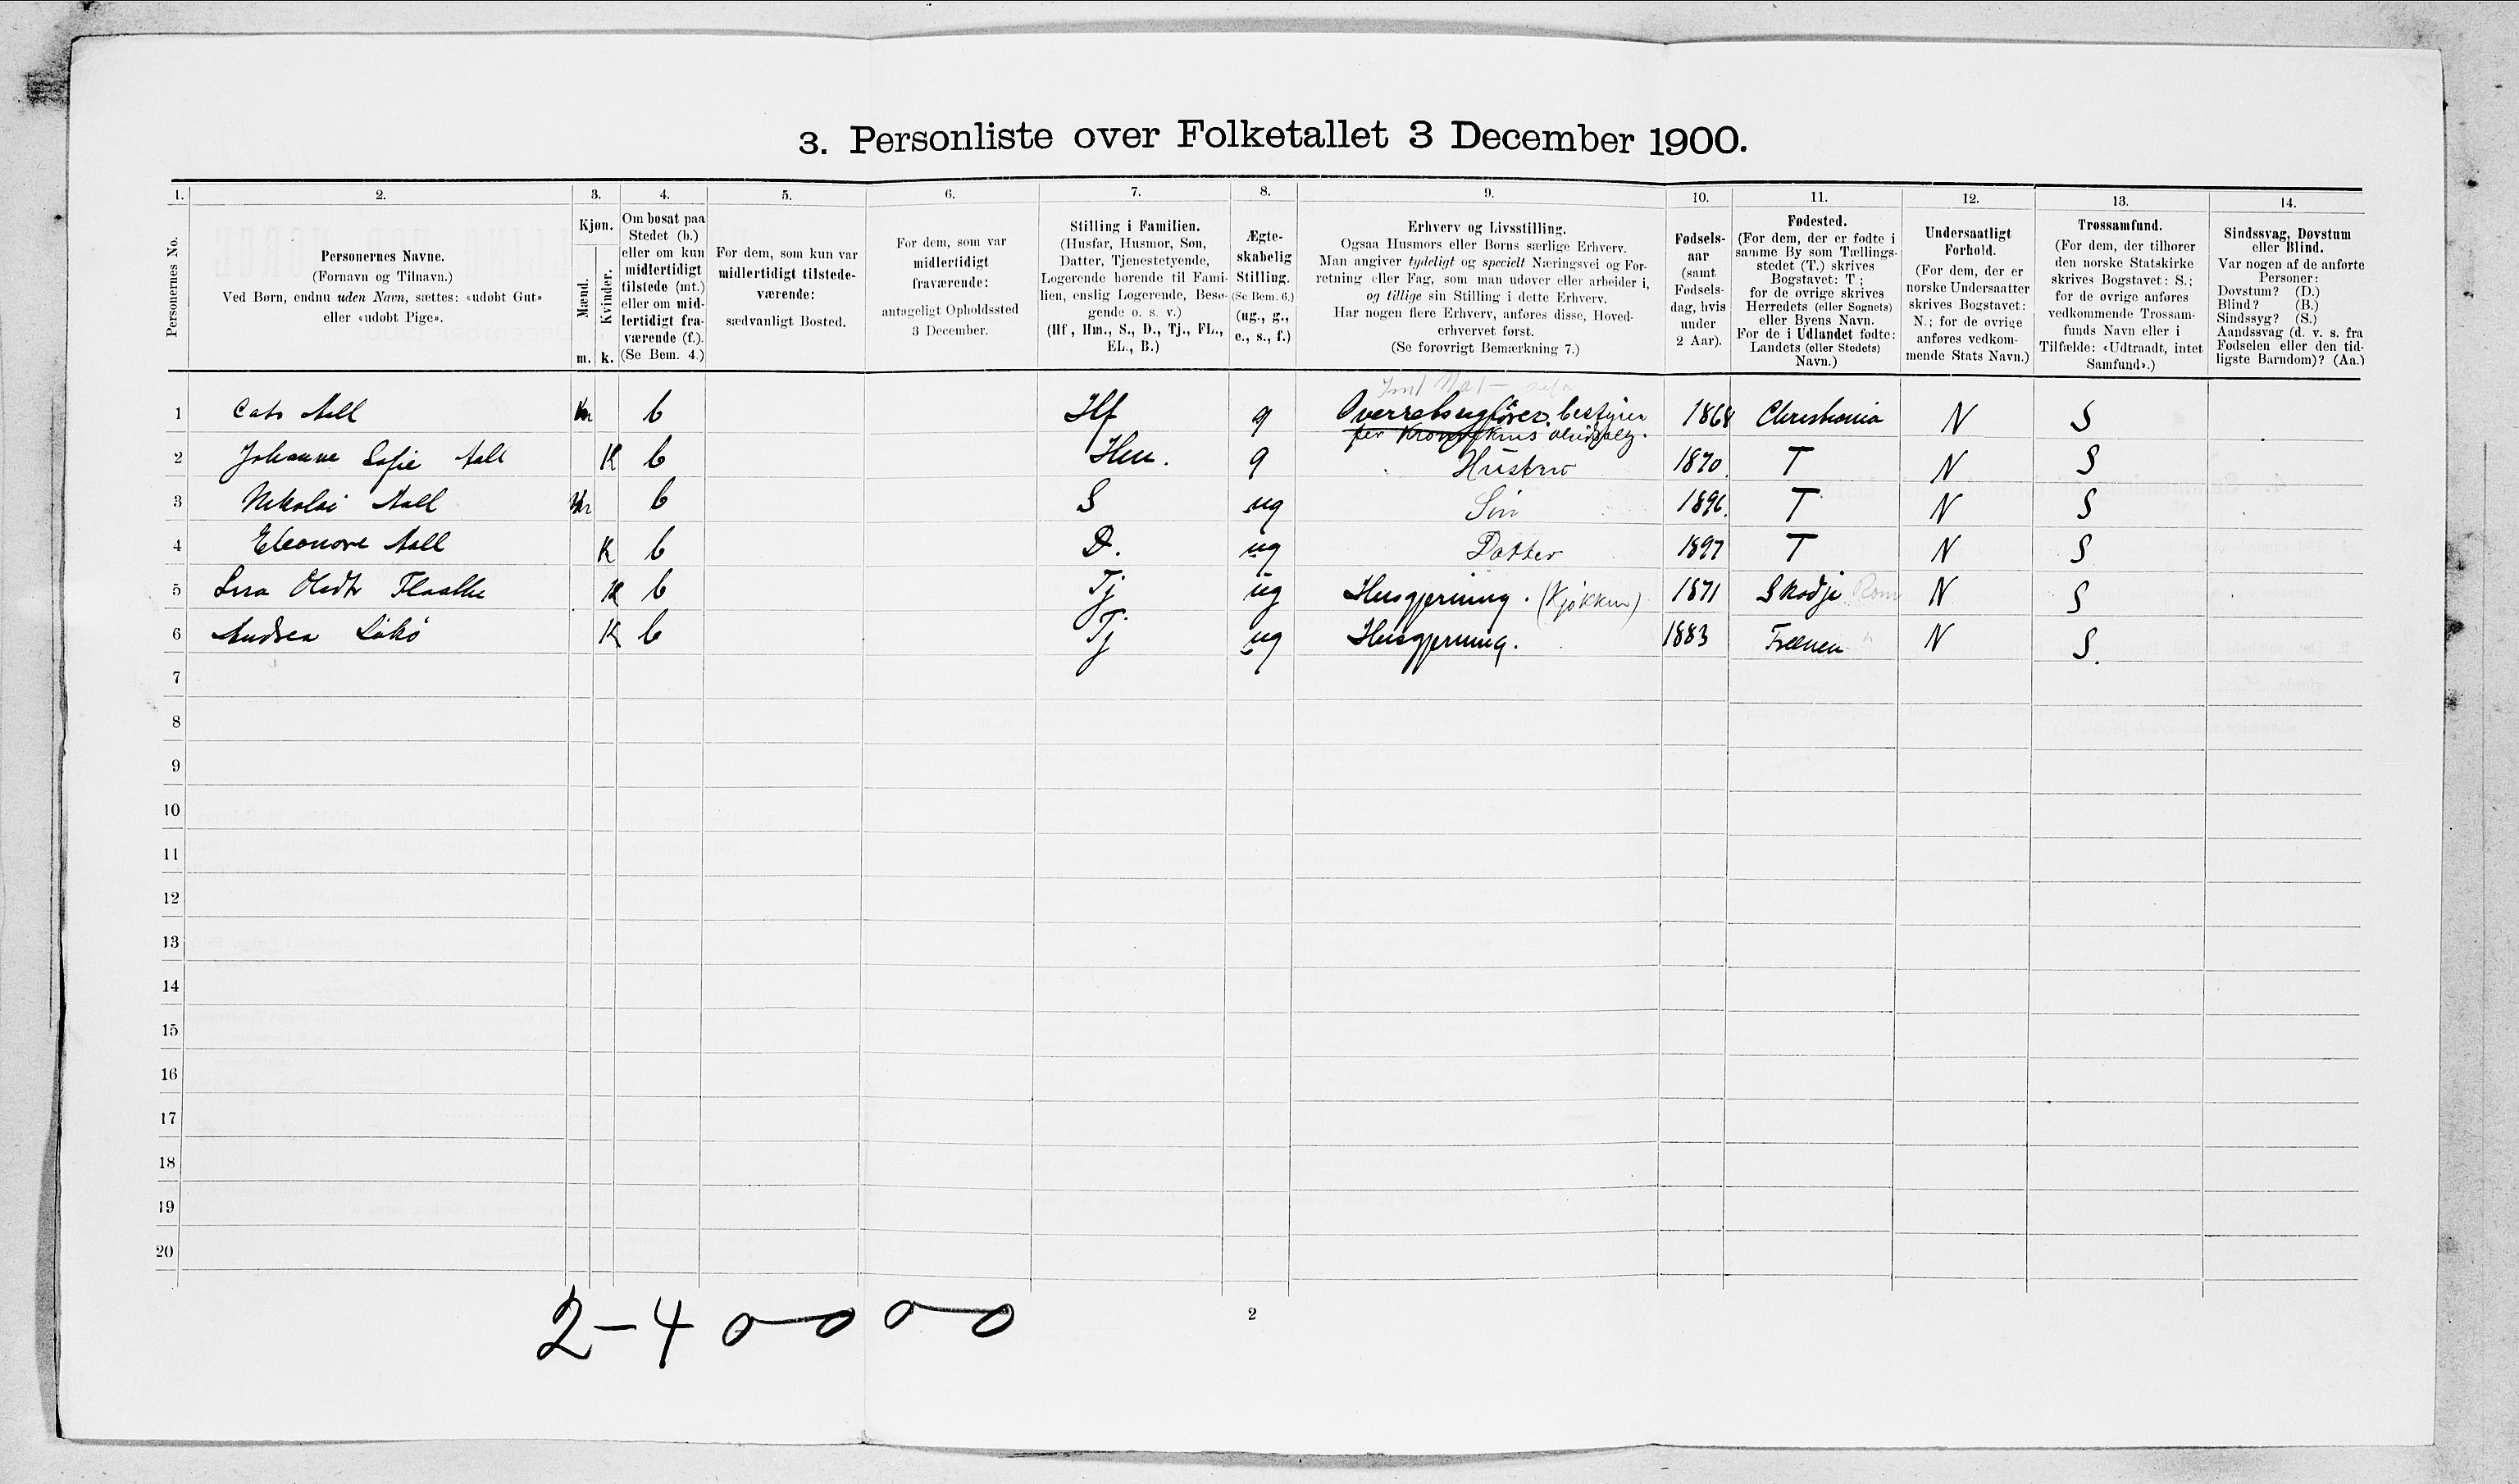 3. Personliste over Folketallet 3 December 1900.
1. 2. 3. 4. 5. 6. 7. 8. 9. 10. 11. 12. 13. 14.
Personernes No.
Personernes Navne.
(Fornavn og Tilnavn.)
Ved Børn, endnu uden Navn, sættes: «udøbt Gut»
eller «udøbt Pige».
Kjøn.
Mænd.
m.
Kvinder.
k.
Om bosat paa
Stedet (b.)
eller om kun
midlertidigt
tilstede (mt.)
eller om mid-
lertidigt fra-
værende (f.).
(Se Bem. 4.)
For dem, som kun var
midlertidigt tilstede-
værende:
sædvanligt Bosted.
For dem, som var
midlertidigt
fraværende:
antageligt Opholdssted
3 December.
Stilling i Familien.
(Husfar, Husmor, Søn,
Datter, Tjenestetyende,
Logerende hørende til Fami-
lien, enslig Logerende, Besø-
gende o. s. v.)
(Hf, Hm., S., D., Tj., FL.,
EL., B.)
Ægte-
skabelig
Stilling.
(Se Bem. 6.)
(ug., g.,
e., s., f.)
Erhverv og Livsstilling.
Ogsaa Husmors eller Børns særlige Erhverv.
Man angiver tydeligt og specielt Næringsvei og For-
retning eller Fag, som man udøver eller arbeider i,
og tillige sin Stilling i dette Erhverv.
Har nogen flere Erhverv, anføres disse, Hoved-
erhvervet først.
(Se forøvrigt Bemærkning 7.)
Fødsels-
aar
(samt
Fødsels-
dag, hvis
under
2 Aar).
Fødested.
(For dem, der er fødte i
samme By som Tællings-
stedet (T.) skrives
Bogstavet: T;
for de øvrige skrives
Herredets (eller Sognets)
eller Byens Navn.
For de i Udlandet fødte:
Landets (eller Stedets)
Navn.)
Undersaatligt
Forhold.
(For dem, der er
norske Undersaatter
skrives Bogstavet:
N.; for de øvrige
anføres vedkom-
mende Stats Navn.)
Trossamfund.
(For dem, der tilhører
den norske Statskirke
skrives Bogstavet: S.;
for de øvrige anføres
vedkommende Trossam-
funds Navn eller i
Tilfælde: «Udtraadt, intet
Samfund».)
Sindssvag, Døvstum
eller Blind.
Var nogen af de anførte
Personer:
Døvstum? (D.)
Blind? (B.)
Sindssyg? (S.)
Aandssvag (d. v. s. fra
Fødselen eller den tid-
ligste Barndom)? (Aa.)
1 Cato Aall m b Hf g Overretssagfører, bestyrer 1868 Christiania N S
2 Johanne Sofie Aall K b Hm. g Hustru 1870. T N S
3 Nikolai Aall m b S ug Søn 1896. T N S
4 Eleonore Aall K b D. ug Datter 1897 T N S
5 K b Tj ug Husgjerning. (Kjøkken) 1871 Skodje N S
6 Andrea K b Tj ug Husgjerning. 1883 N S.
7
8
9
10
11
12
13
14
15
16
17
18
19
20
2-4 0-0 0-0
2